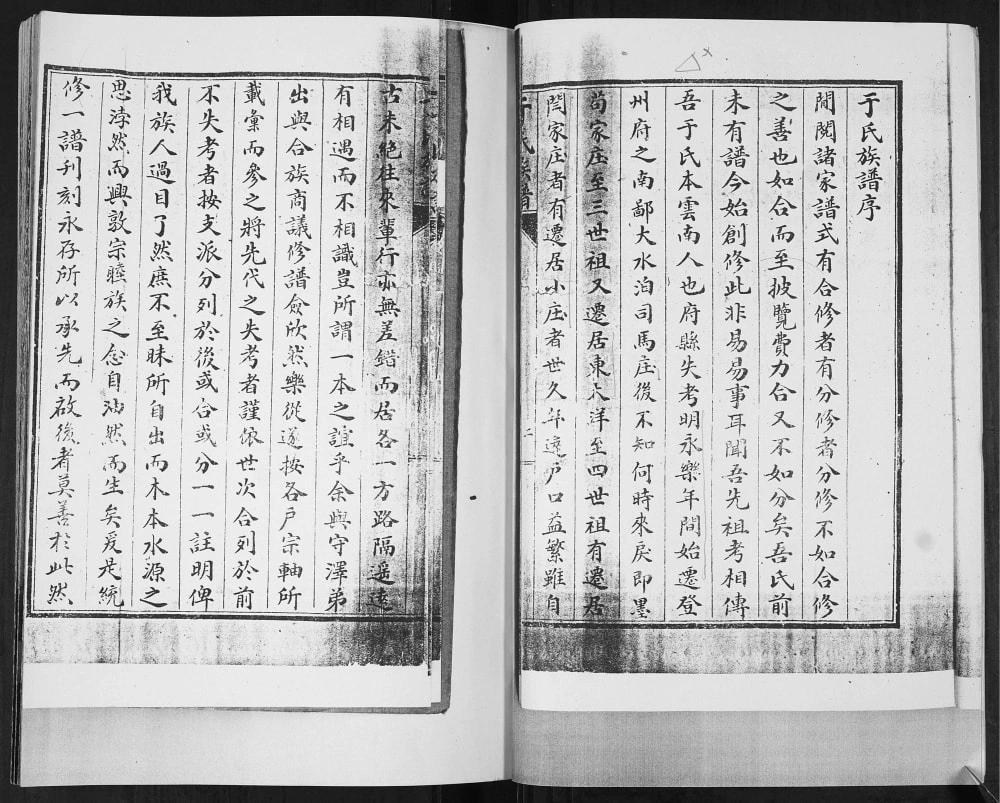 于氏族譜序
間閱諸家譜式有合修者有分修者分修不如合修
之善也如合而至披覽費力合又不如分矣吾氏前
未有譜今始創修此非易易事耳聞吾先祖考相傳
吾于氏本雲南人也府縣失考明永樂年間始遷登
州府之南鄙大水泊司馬庄後不知何時來戾即墨
苟家庄至三世祖又遷居東大洋至四世祖有遷居
閆家庄者有遷居小庄者世久年遠户口益繁雖自
于氏族譜
二
古未絶往來輩行亦無差錯而居各一方路隔遥遠
有相遇而不相識豈所謂一本之誼乎余與守澤弟
出與合族商議修譜僉欣然樂從遂按各戶宗軸所
載彙而參之將先代之失考者謹依世次合列於前
不失考者按支派分列於後或合或分一一註明俾
我族人過目了然庶不至昧所自出而木本水源之
思浡然而興敦宗睦族之念自油然而生矣爰是統
修一譜刊刻永存所以承先而啟後者莫善於此然